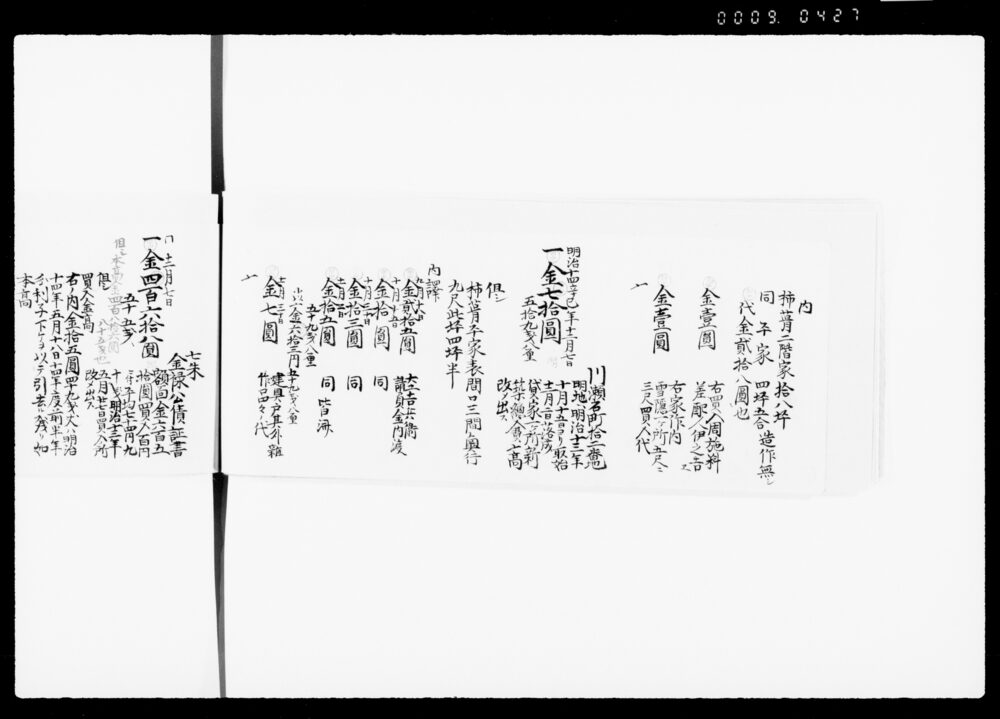 0009. 0427
内
柿葺二階家拾八坪
同 平家 四坪五合造作無シ
代金貳拾八圓也
金壹圓
右買入周施料
差配人伊之吉
金壹圓
右家作内
雪隠一ヶ所五尺ニ
三尺買入代
明治十四辛巳年十二月七日
一金七拾圓
五拾九銭八重
川瀬石町拾二番地
明地明治十三年
十月十五日ヨリ取始
十二月二日落成
貸家一ヶ所新
築繕入費〆高
改メ出ス
但シ
柿葺平家表間口三間奥行
九尺此坪四坪半
内譯
金貳拾五圓
大工吉兵衛
請負金内渡
十月十五日
金拾圓 同
金拾三圓 同
金拾五圓 同 皆済
五十九銭八重
小以金六拾三円五十九銭八重
金七圓
建具戸其外雑
作品四々代
十二月七日
一金四百六拾八圓
五十五銭
七朱
金禄公債証書
額面金六百五
拾圓買入百円
ニ付平均七十四円九
十銭明治十三年
五月廿七日買入所
改メ出ス
但シ
買入金高
右ノ内金拾五圓四十九銭八明治
十四年五月十八日十四年度前半年
分利子下ケヲ以テ引去リ残リ如
本高